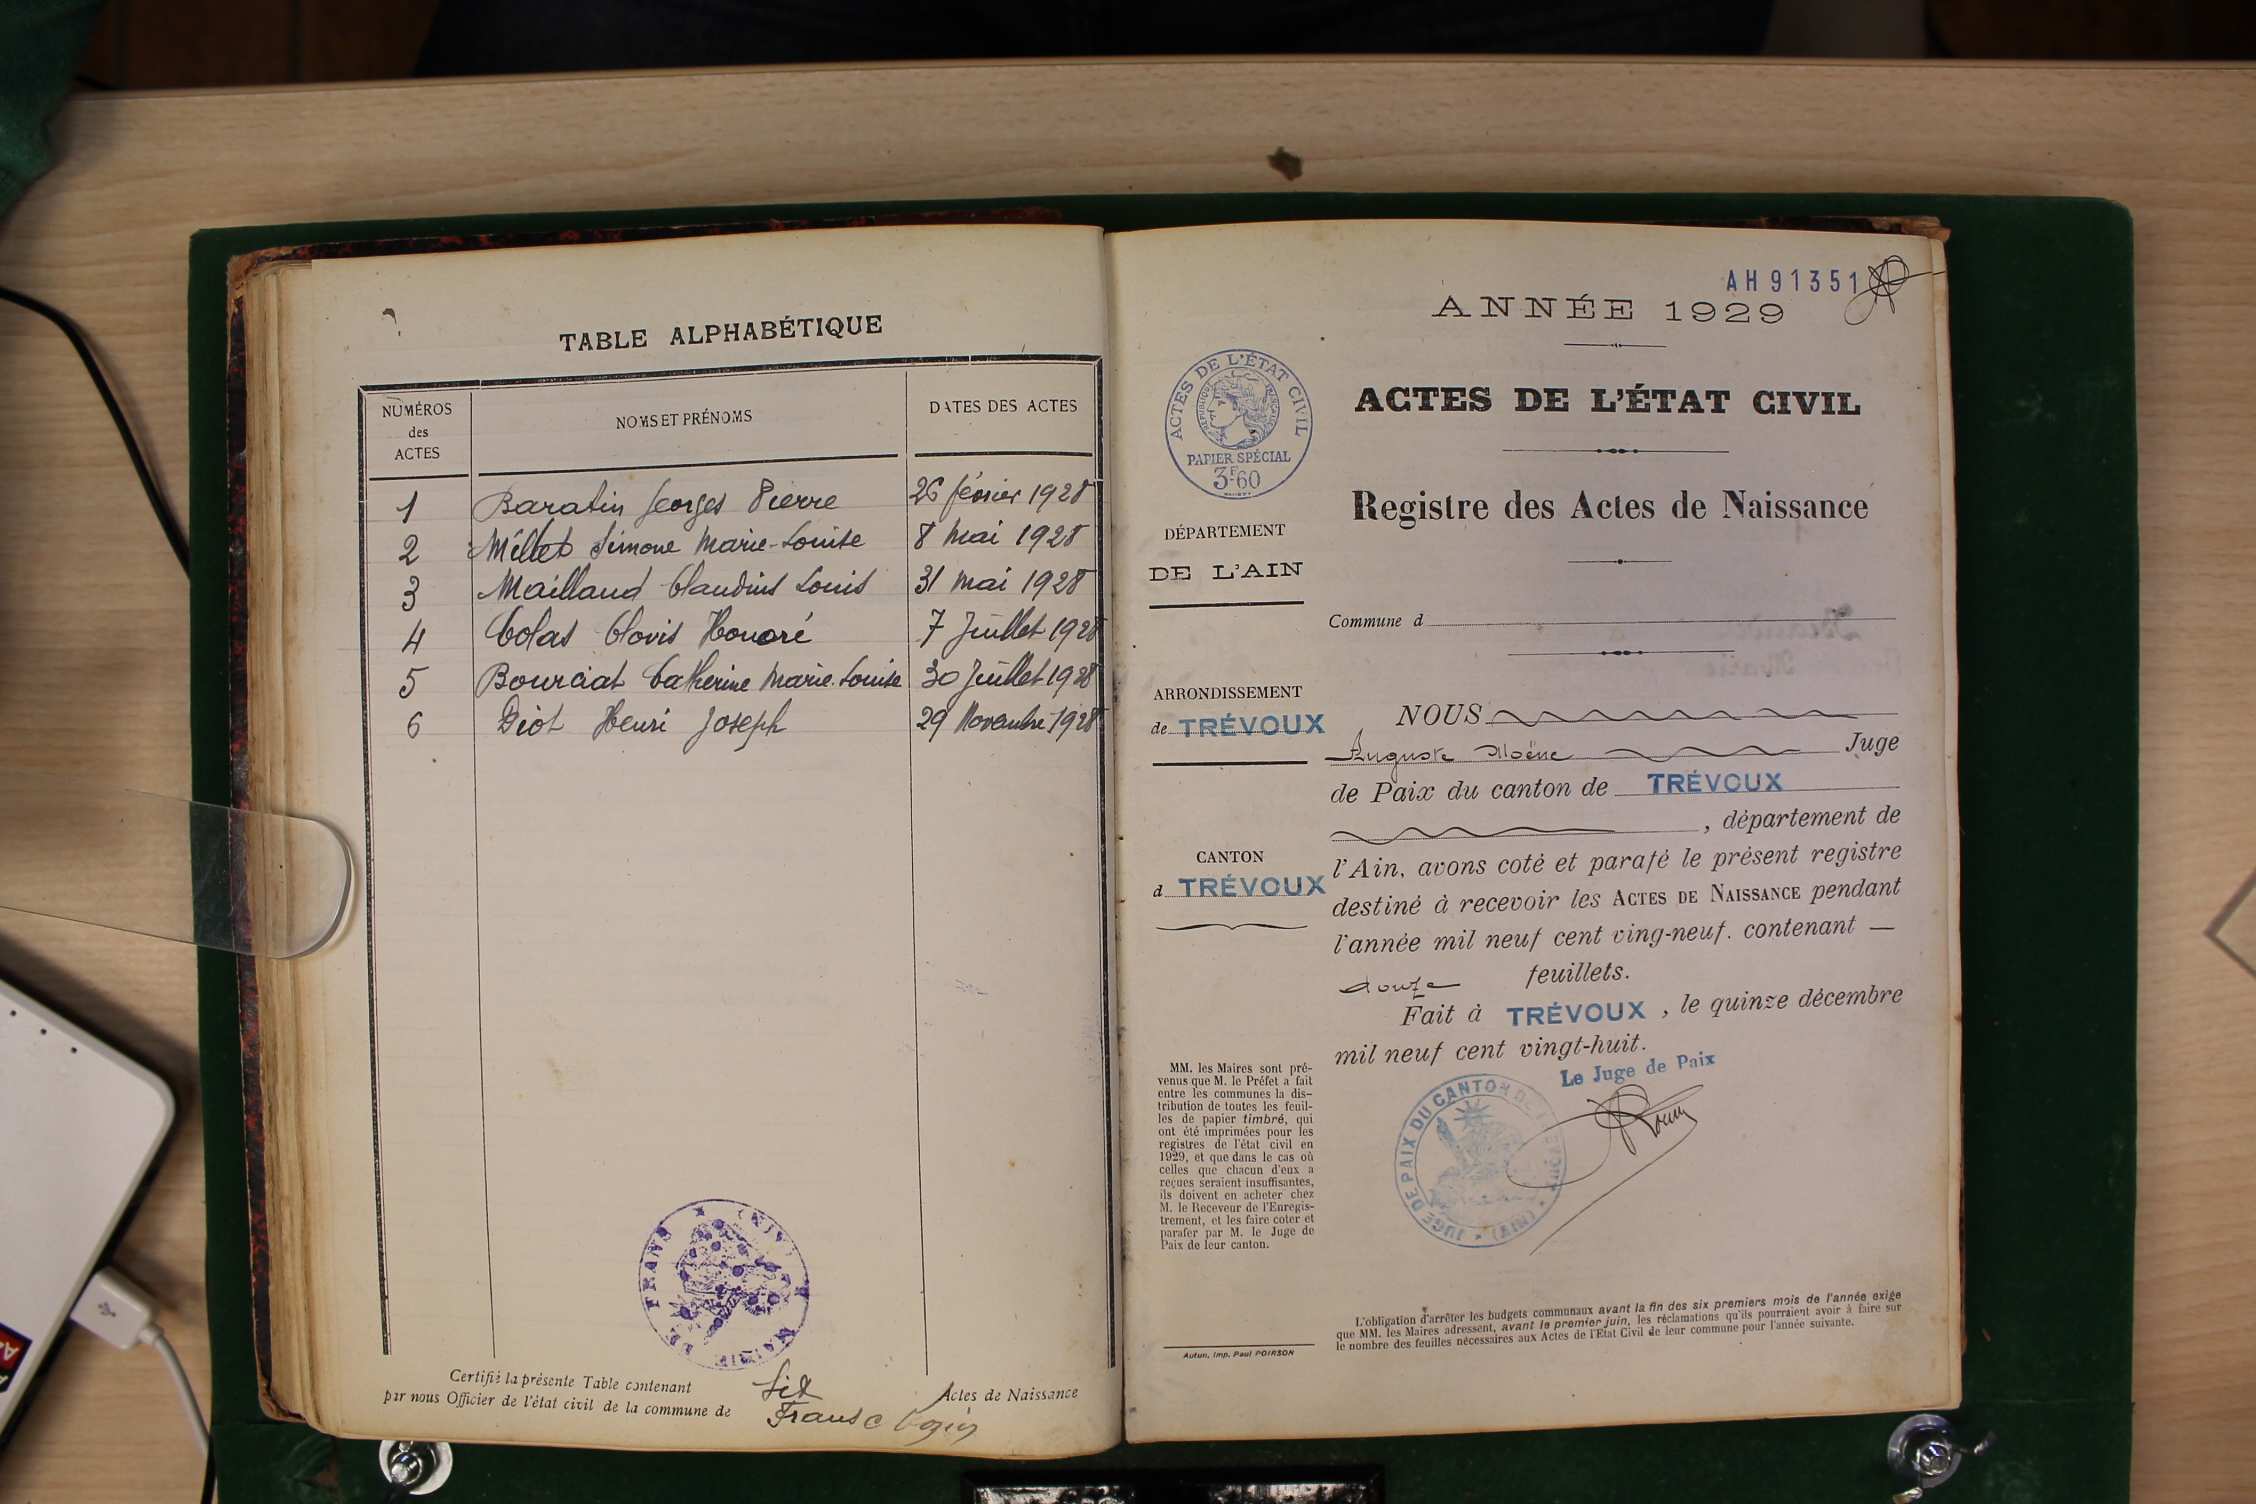 TABLE ALPHABÉTIQUE
NUMÉROS
des
ACTES
NOMS ET PRÉNOMS
DATES DES ACTES
1 Baratin Georges Pierre 26 février 1928
2 Millet Simone Marie-Louise 8 Mai 1928
3 Maillaud Claudius Louis 31 Mai 1928
4 Colas Clovis Honoré 7 Juillet 1928
5 Bourciat Catherine Marie-Louise 30 Juillet 1928
6 Diot Henri Joseph 29 Novembre 1928
MAIRIE DE FRANS (AIN)
Certifié la présente Table contenant Six Actes de Naissance
par nous Officier de l'état civil de la commune de Frans
AH 91351
ANNÉE 1929
ACTES DE L'ÉTAT CIVIL
RÉPUBLIQUE FRANÇAISE
PAPIER SPÉCIAL
3F.60
ACTES DE L'ÉTAT CIVIL
Registre des Actes de Naissance
DÉPARTEMENT
DE L'AIN
Commune d
ARRONDISSEMENT
de TRÉVOUX
CANTON
d TRÉVOUX
NOUS
Auguste Juge
de Paix du canton de TRÉVOUX
, département de
l'Ain, avons coté et parafé le présent registre
destiné à recevoir les ACTES DE NAISSANCE pendant
l'année mil neuf cent ving-neuf. contenant —
douze feuillets.
Fait à TRÉVOUX, le quinze décembre
mil neuf cent vingt-huit.
Le Juge de Paix
JUGE DE PAIX DU CANTON DE TRÉVOUX (AIN)
MM. les Maires sont pré-
venus que M. le Préfet a fait
entre les communes la dis-
tribution de toutes les feuil-
les de papier timbré, qui
ont été imprimées pour les
registres de l'état civil en
1929, et que dans le cas où
celles que chacun d'eux a
reçues seraient insuffisantes,
ils doivent en acheter chez
M. le Receveur de l'Enregis-
trement, et les faire coter et
parafer par M. le Juge de
Paix de leur canton.
Autun, Imp. Paul POIRSON
L'obligation d'arrêter les budgets communaux avant la fin des six premiers mois de l'année exige
que MM. les Maires adressent, avant le premier juin, les réclamations qu'ils pourraient avoir à faire sur
le nombre des feuilles nécessaires aux Actes de l'État Civil de leur commune pour l'année suivante.